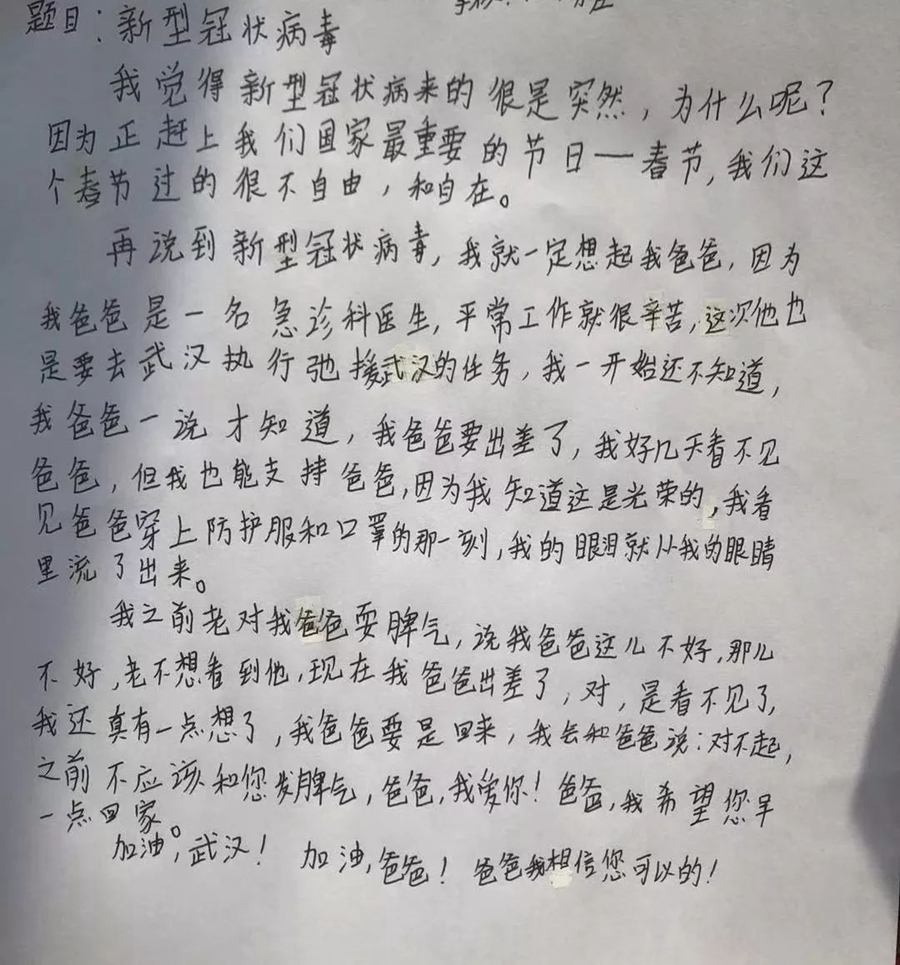 题目:新型冠状病毒
我觉得新型冠状病来的很是突然,为什么呢?
因为正赶上我们国家最重要的节日——春节,我们这
个春节过的很不自由,和自在。
再说到新型冠状病毒,我就一定想起我爸爸,因为
我爸爸是一名急诊科医生,平常工作就很辛苦,这次他也
是要去武汉执行弛援武汉的任务,我一开始还不知道,
我爸爸一说才知道,我爸爸要出差了,我好几天看不见
爸爸,但我也能支持爸爸,因为我知道这是光荣的,我看
见爸爸穿上防护服和口罩的那一刻,我的眼泪就从我的眼睛
里流了出来。
我之前老对我爸爸耍脾气,说我爸爸这儿不好,那儿
不好,老不想看到他,现在我爸爸出差了,对,是看不见了,
我还真有一点想了,我爸爸要是回来,我会和爸爸说:对不起,
之前不应该和您发脾气,爸爸,我爱你!爸爸,我希望您早
一点回家。
加油,武汉! 加油,爸爸! 爸爸我相信您可以的!